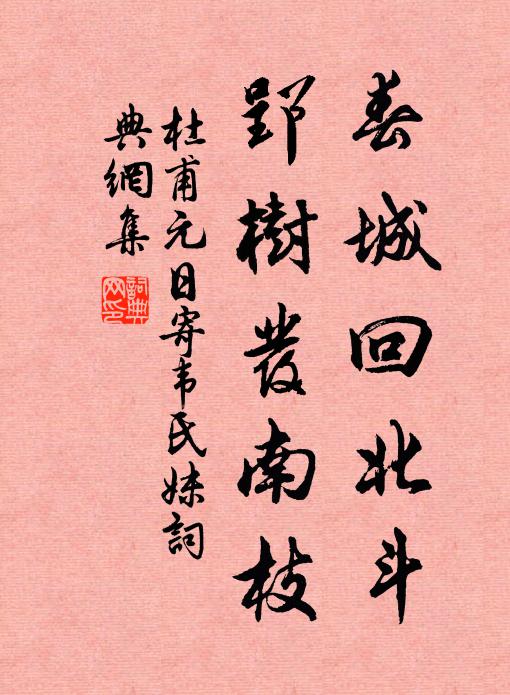 春城回北斗
郢樹發南枝
杜甫元日寄韦氏妹詞
典網集
詞典网印